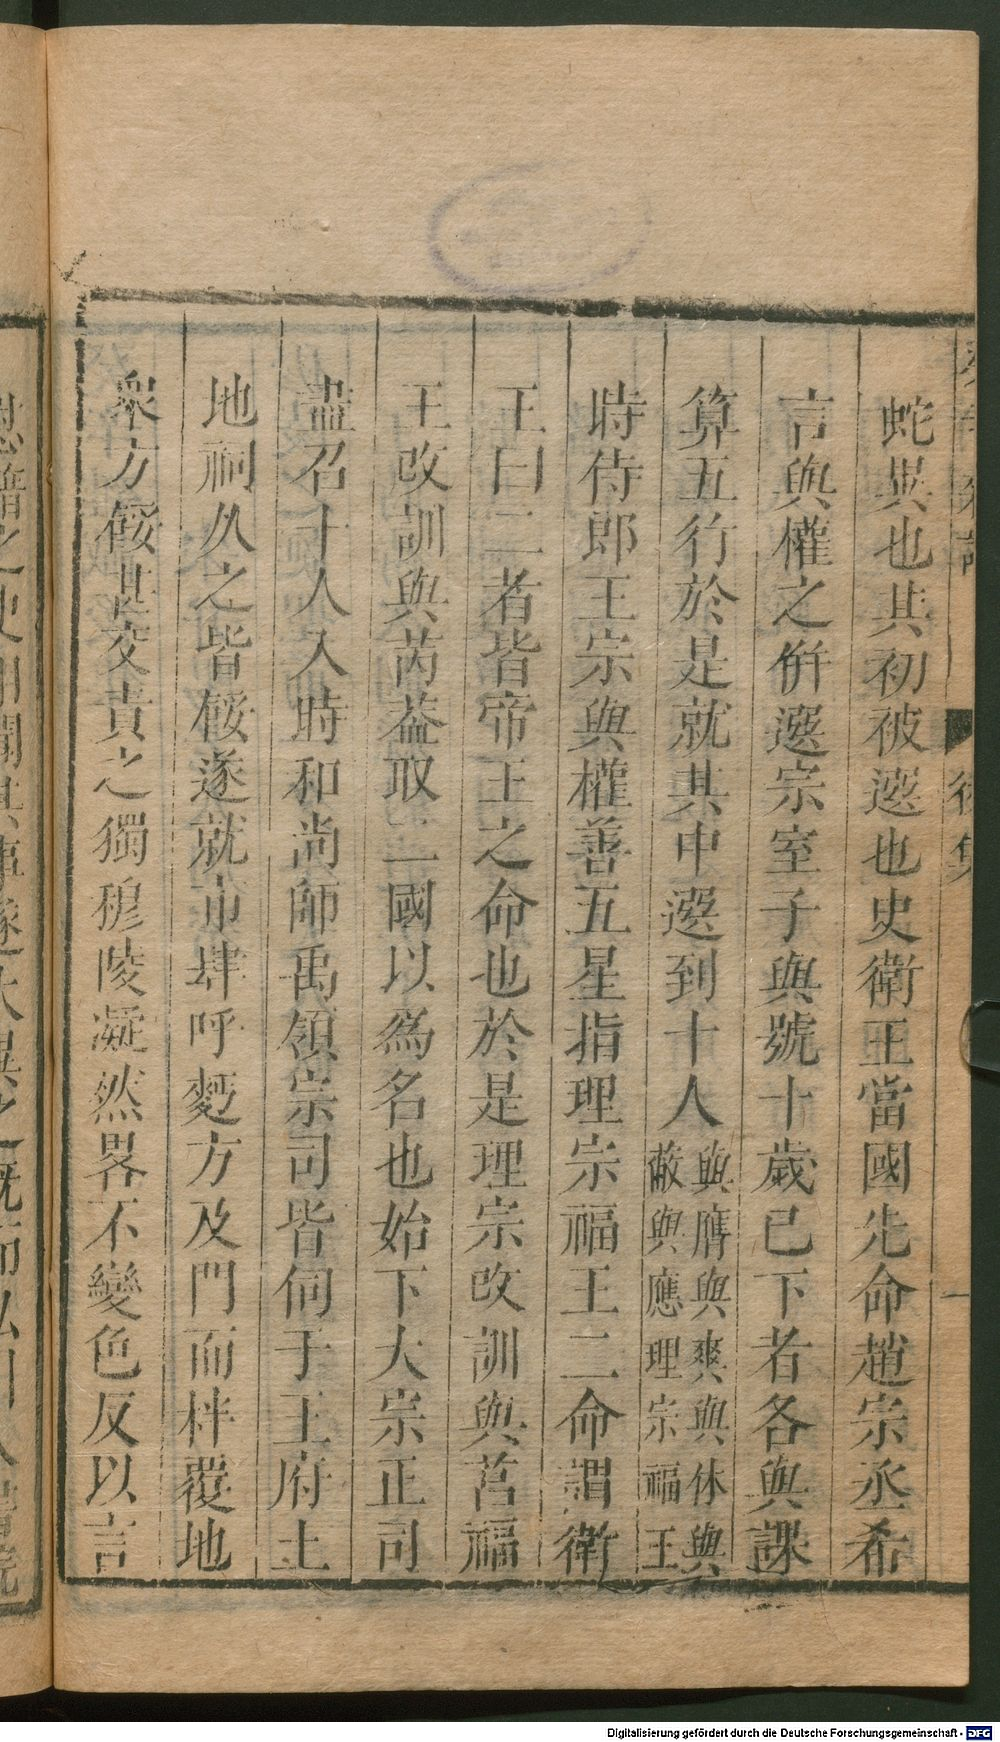 蛇異也其初被選也史衛王當國先命趙宗丞希
言與權之併選宗室子與號十歲已下者各與課
算五行於是就其中選到十人與膺與爽與休與
蔽與應理宗福王
時侍郎王宗與權善五星指理宗福王二命謂衛
王曰二者皆帝王之命也於是理宗改訓與莒福
王改訓與芮葢取二國以爲名也始下大宗正司
盡召十人入時和尚師禹領宗司皆伺于王府土
地祠久之皆餒遂就市肆呼麪方及門而柈覆地
衆方餒甚交責之獨穆陵凝然畧不變色反以言
後集
一
Digitalisierung gefördert durch die Deutsche Forschungsgemeinschaft - DFG